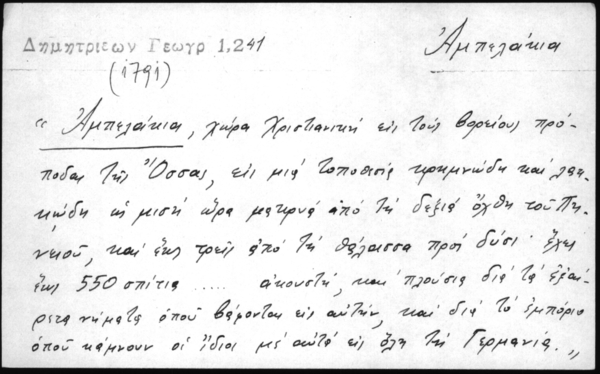 Δημητριεων Γεωγρ 1,241
Ἀμπελάκια
(1791)
“ Ἀμπελάκια, χώρα Χριστιανική εἰς τούς βορείους πρό-
ποδας τῆς Ὄσσας, εἰς μιά τοποθεσία κρημνώδη καί λακ-
κώδη ὡς μισή ὥρα μακρυά ἀπό τή δεξιά ὄχθη τοῦ Πη-
νειοῦ, καί ἕως τρεῖς ἀπό τή θάλασσα πρός δύσι· ἔχει
ἕως 550 σπίτια ..... ἀκουστή, καί πλούσια διά τά ἐξαί-
ρετα νήματα ὁποῦ βάφονται εἰς αὐτήν, καί διά τό ἐμπόριο
ὁποῦ κάμνουν οἱ ἴδιοι μέ αὐτά εἰς ὅλη τή Γερμανία. „